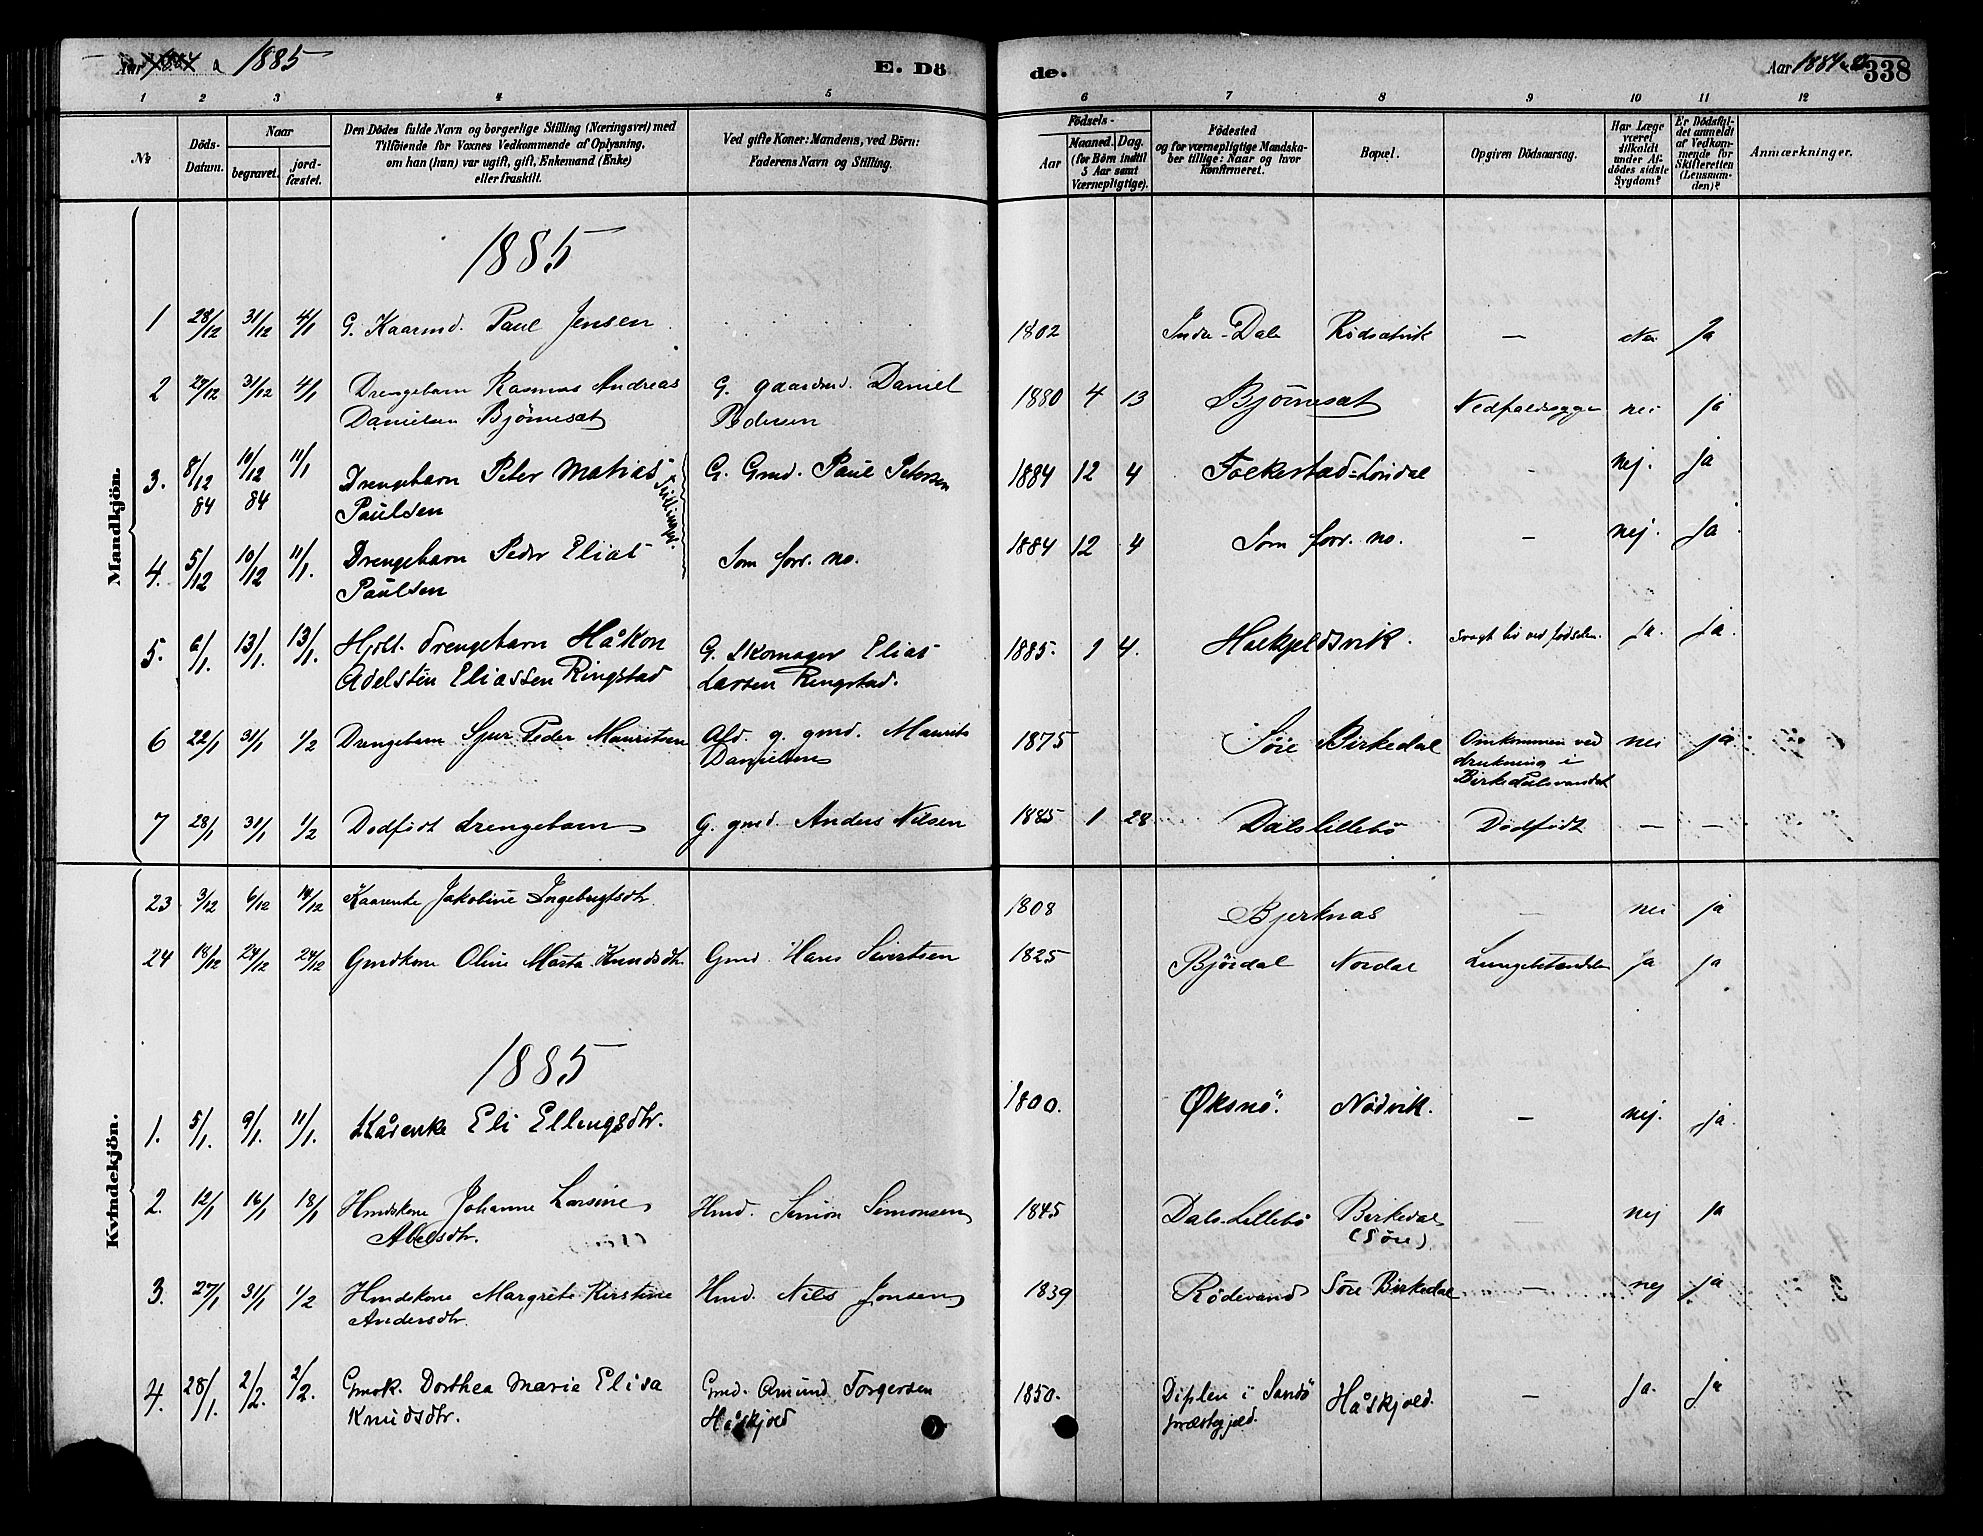 Aar 1884 a 1885
E. Dö
de.
Aar 1884-85
338
1 2 3 4 5 6 7 8 9 10 11 12
No
Döds-Datum.
Naar
begravet.
jord-fæstet.
Den Dödes fulde Navn og borgerlige Stilling (Næringsvei) med
Tilföiende for Voxnes Vedkommende af Oplysning,
om han (hun) var ugift, gift, Enkemand (Enke)
eller fraskilt.
Ved gifte Koner: Mandens, ved Börn:
Faderens Navn og Stilling.
Födsels-
Aar
Maaned. Dag.
(for Börn indtil
5 Aar samt
Værnepligtige).
Födested
og for værnepligtige Mandska-
ber tillige: Naar og hvor
Konfirmeret.
Bopæl.
Opgiven Dödsaarsag.
Har Læge
været
tilkaldt
under Af-
dödes sidste
Sygdom?
Er Dödsfal-
det anmeldt
af Vedkom-
mende for
Skifteretten
(Lensman-
den)?
Anmærkninger.
Mandkjön.
1885
1 28/12 31/12 4/1 G. Kaarmd. Paul Jensen 1802 Indre-Dale Rödsætvik — Nei Ja
2 27/12 31/12 4/1 Drengebarn Rasmus Andreas G. gaardmd. Daniel 1880 4 13 Bjørnesæt Nedfaldssyge nei ja
Danielsen Bjørnesæt Pedersen
3. 8/12 84 10/12 84 11/1 Drengebarn Peter Matias G. Gmd. Paul Petersen 1884 12 4 Folkestad-Løndal — nej. ja
Paulsen
Tvillinger.
4. 5/12 10/12 11/1. Drengebarn Peder Elias Som forr. no. 1884 12 4 Som forr. no. — nej. Ja
Paulsen
5. 6/1. 13/1. 13/1. Hjdt. drengebarn Håkon G. Skomager Elias 1885. 1 4. Holkjeldsvik. Svagt liv ved fødselen. Ja. Ja.
Adelstén Eliassen Ringstad Larsen Ringstad.
6 22/1 31/1 1/2 Drengebarn Sjur Peder Mauritsen Afd. g. gmd. Maurits 1875 Søre Birkedal Omkommen ved nei ja
Danielsen drukning i
Birkedalsvandet
7 28/1 31/1 1/2 Dødfødt drengebarn G. gmd. Anders Nilsen 1885 1 28 Dalslillebø Dødfødt — —
Kvindekjön.
23 3/12 6/12 14/12 Kaarenke Jakobine Ingebrigtsdtr. 1808 Bjerknæs — nei ja
24 18/12 24/12 24/12 Gmdkone Oline Marta Knudsdtr. Gmd. Hans Sivertsen 1825 Bjørdal Nordal Lungebetændelse Ja ja
1885
1. 5/1. 9/1. 11/1. Kårenke Eli Ellingsdtr. 1800. Øksnö. Nödvik. — nej. ja
2. 12/1 16/1 18/1 Hmdskone Johanne Larsine Hmd. Simon Simonsen 1845 Dals-Lillebö Birkedal — nej ja
Abelsdtr. (Söre)
3. 27/1 31/1 1/2 Hmdskone Margrete Kirstine Hmd. Nils Jonsen 1839 Rödevand Söre Birkedal — nej ja
Andersdtr.
4. 28/1. 2/2. 2/2. Gmdk. Dorthea Marie Elisa Gmd. Amund Torgersen 1850. Diplen i Sandö Håskjold. — Ja. Ja
Knudsdtr. Håskjold præstegjeld.